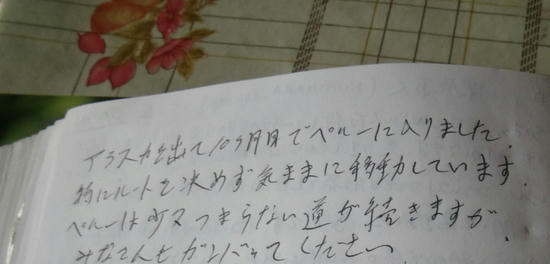 アラスカを出て10ヶ月目でペルーに入りました.
特にルートを決めず気ままに移動しています.
ペルーは少々つまらない道が続きますが
みなさんもガンバッてください